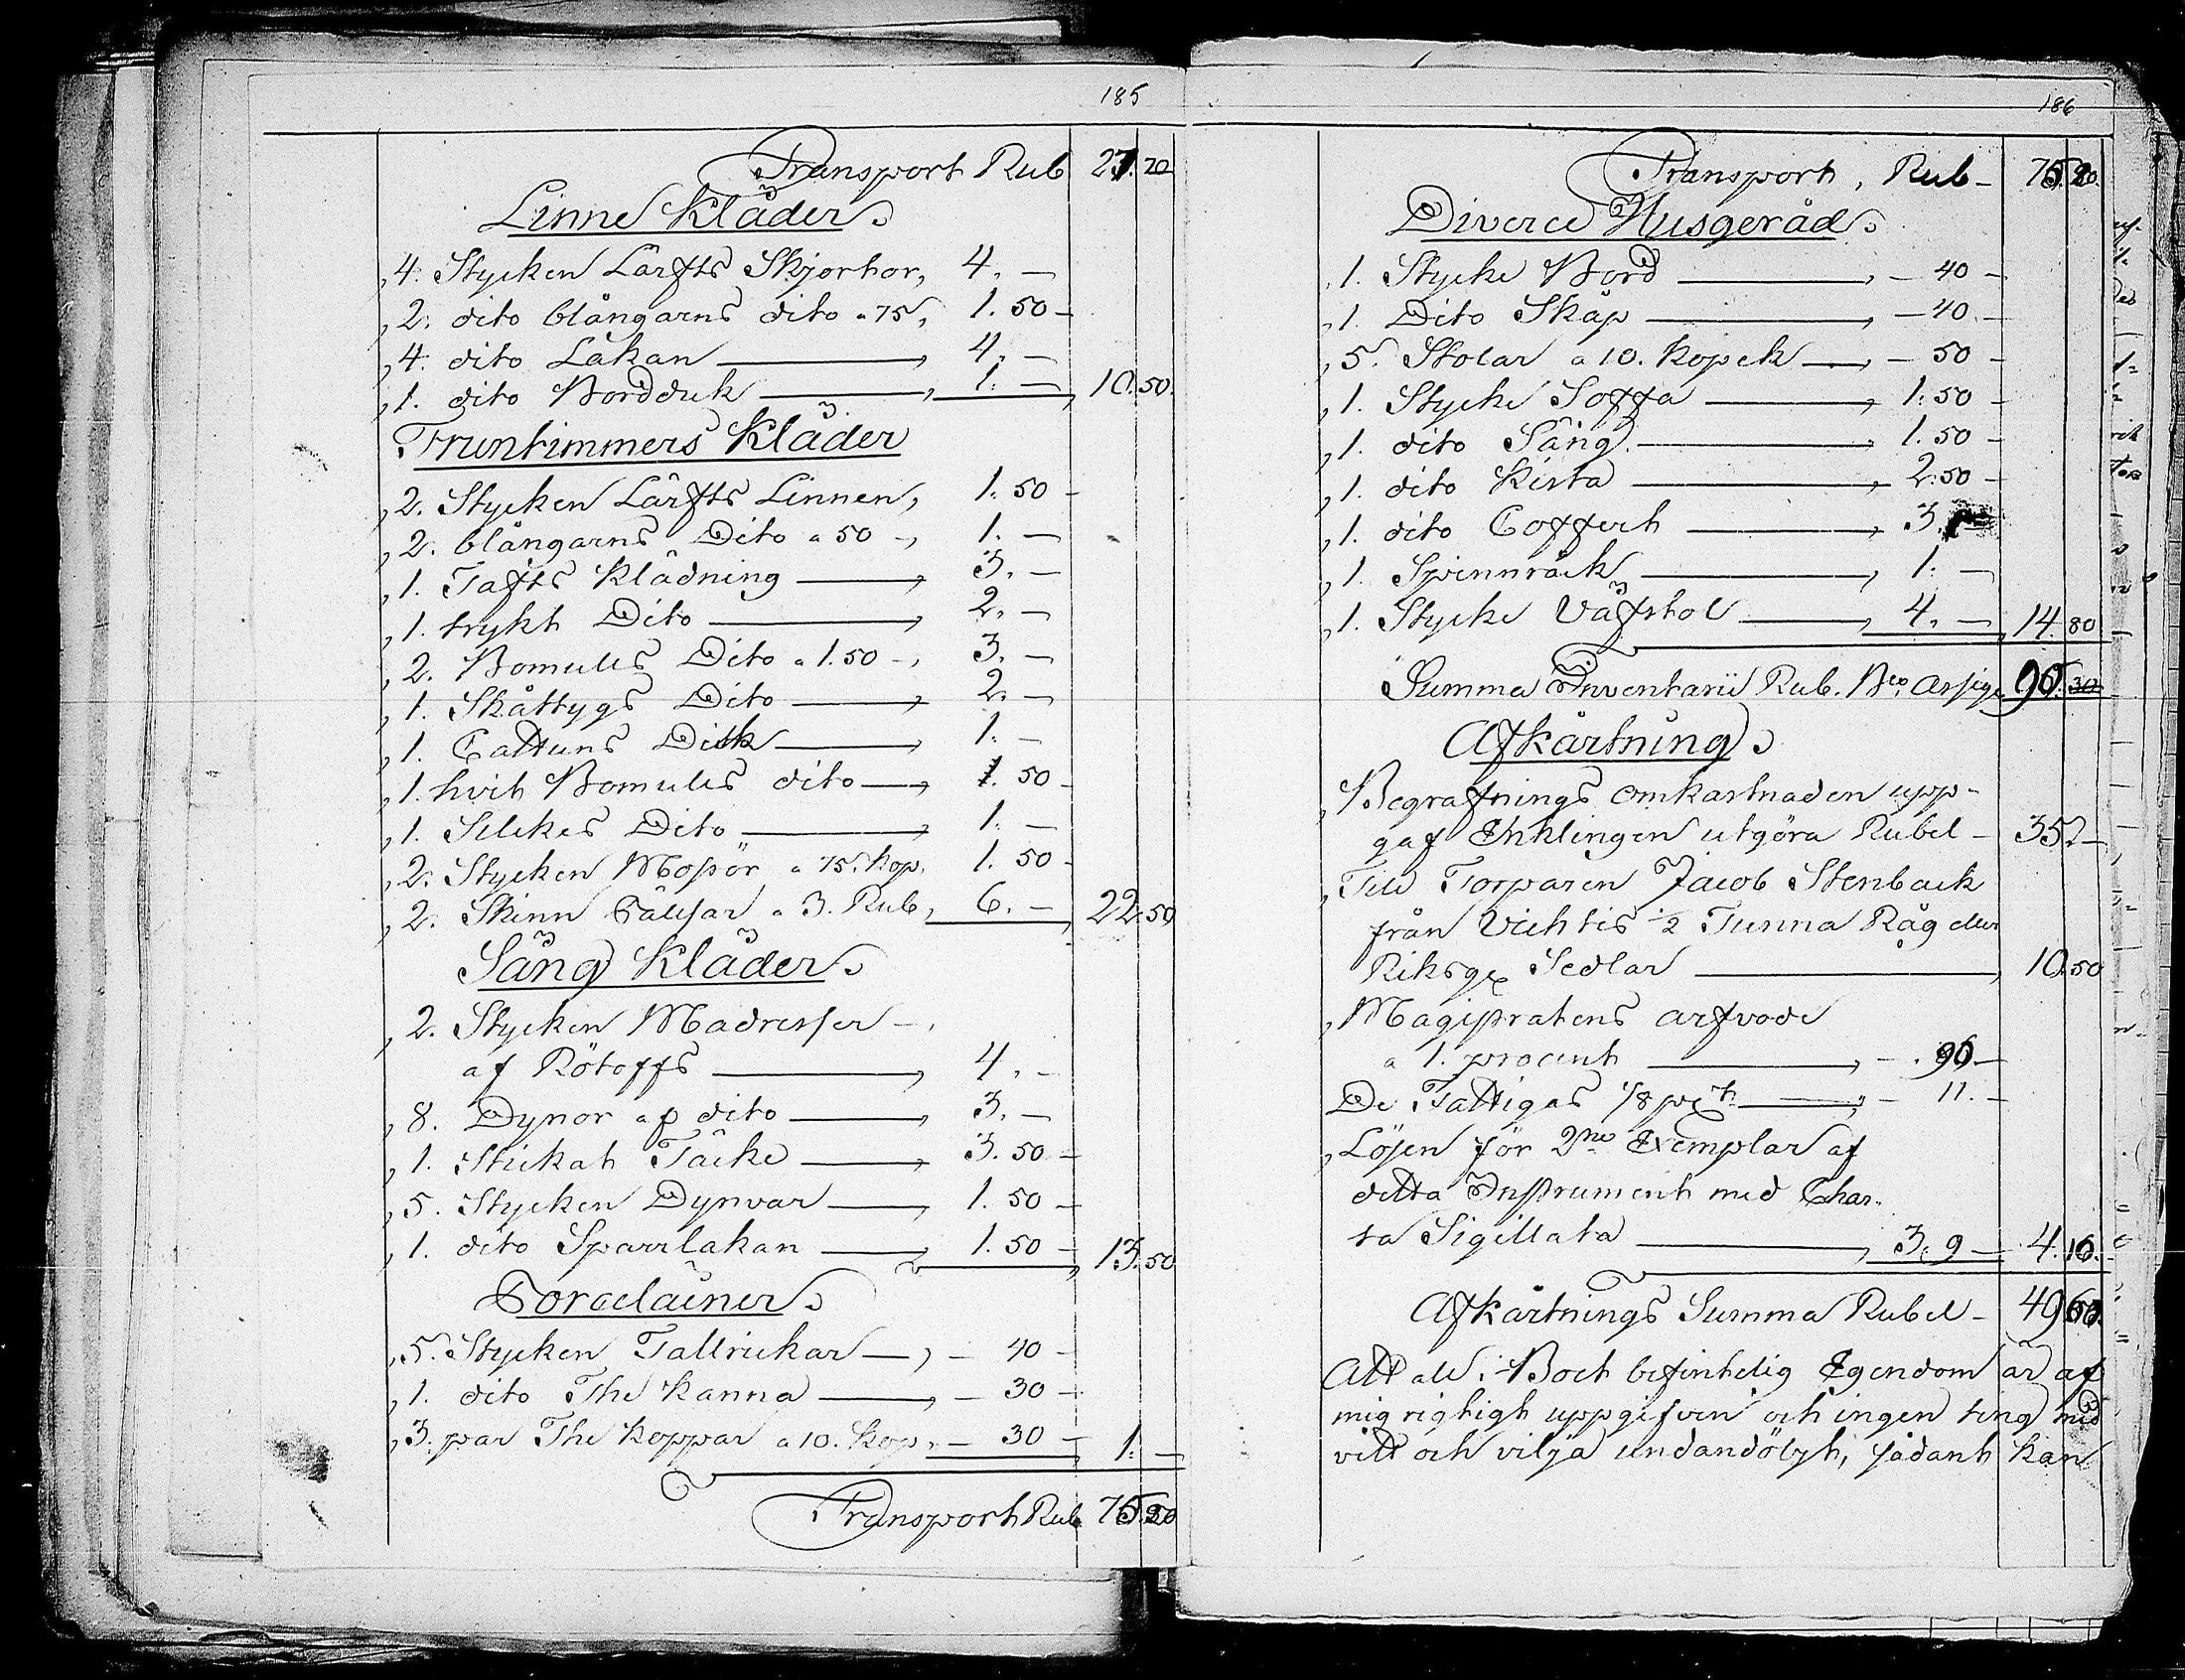 185
Transport Rub 27. 20
Linne Kläder
4. Stycken Lärfts Skjortor, 4. —
2. dito blångarns dito a 75, 1. 50 —
4. dito Lakan — 4. —
1. dito Bordduk — 1. — 10. 50.
Fruntimmers Kläder
2. Stycken Lärfts Linnen, 1. 50 —
2. blångarns Dito a 50 —, 1. —
1. Tafts Klädning — 3. —
1. trykt Dito — 2. —
2. Bomulls Dito a 1. 50 —, 3. —
1. Skåttygs Dito — 2. —
1. Cattuns — 1. —
1. hvit Bomulls dito — 1. 50 —
1. Silkes Dito — 1. —
2. Stycken a 75. kop. 1. 50 —
2. Skinn Pälsar a 3. Rub, 6. — 22. 50
Säng Kläder
2. Stycken Madrasser —
af — 4. —
8. Dynor af dito — 3. —
1. Stickat Täcke — 3. 50 —
5. Stycken Dynvar — 1. 50 —
1. dito Sparrlakan — 1. 50 — 13. 50
Porcelainer
5. Stycken Tallrickar —, — 40 —
1. dito The kanna — 30 —
3. par The koppar a 10. Kop. — 30 — 1. —
Transport Rub
186
Transport, Rub —
Diverce Husgeråd
1. Stycke Bord — 40 —
1. Dito Skåp — 40. —
5. Stolar a 10. Kopek — 50 —
1. Stycke Soffa — 1. 50 —
1. dito Säng — 1. 50 —
1. dito Kista — 2. 50 —
1. dito Coffert — 3.
1. Spinnråck — 1. —
1. Stycke Väfstol — 4. — 14. 80
Summa Inventarii Rub. Bco. Assign
Afkårtning
Begrafnings omkastnaden upp-
gaf Enklingen utgöra Rubel — 35. —
Till Torparen Jacob Stenback
från Vichtis ½ Tunna Råg eller
Riksgx Sedlar — 10. 50
Magistratens arfvode
a 1. procent —
De Fattigas 1/8 pct. — 11. —
Lösen för 2ne Exemplar af
detta Instrument med Char-
ta Sigillata — 3. 9 — 4. 10.
Afkårtnings Summa Rubel —
Att all i Boet befintelig Egendom är af
mig richtigt uppgifven och ingen ting med
vett och vilja undandöligt, sådant kan